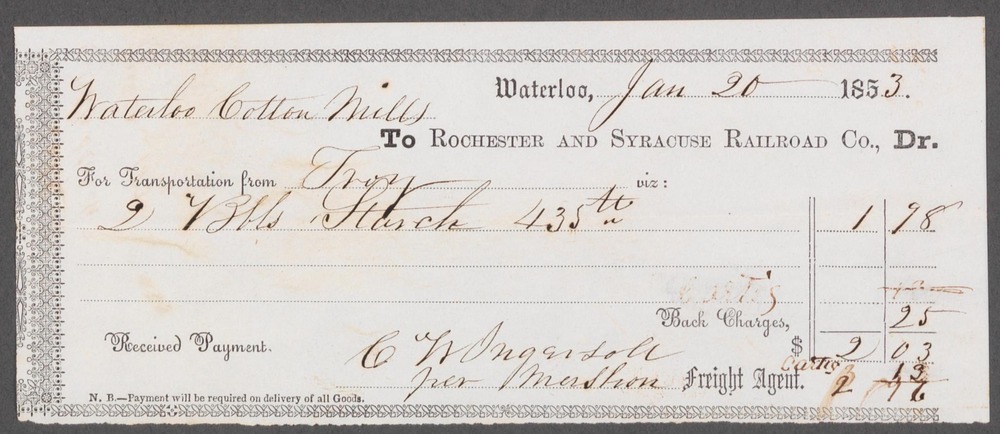 Waterloo, Jan 20 1853.
Waterloo Cotton Mills
To Rochester and Syracuse Railroad Co., Dr.
For Transportation from Troy viz:
2 Bbls Starch 435 lb 1 98
Back Charges, 25
Received Payment. $ 2 03
C W Ingersoll
per Freight Agent.
N. B.—Payment will be required on delivery of all Goods.